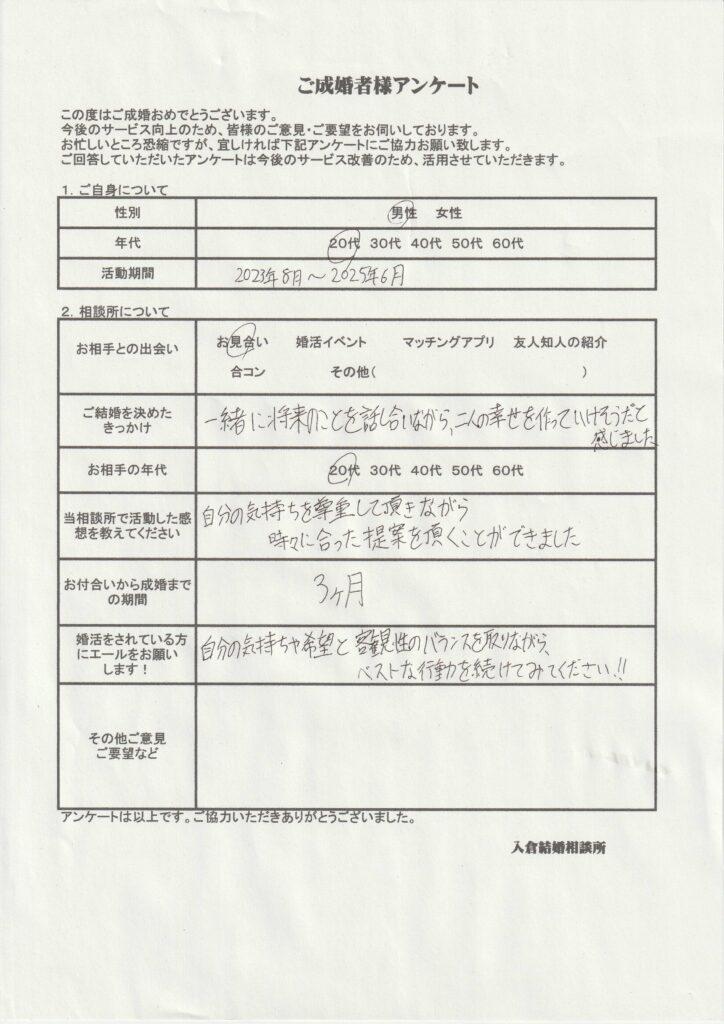 ご成婚者様アンケート
この度はご成婚おめでとうございます。
今後のサービス向上のため、皆様のご意見・ご要望をお伺いしております。
お忙しいところ恐縮ですが、宜しければ下記アンケートにご協力お願い致します。
ご回答していただいたアンケートは今後のサービス改善のため、活用させていただきます。
1．ご自身について
性別 男性 女性
年代 20代 30代 40代 50代 60代
活動期間 2023年8月～2025年6月
2．相談所について
お相手との出会い お見合い 婚活イベント マッチングアプリ 友人知人の紹介
合コン その他( )
ご結婚を決めた
きっかけ
一緒に将来のことを話し合いながら、二人の幸せを作っていけそうだと
感じました
お相手の年代 20代 30代 40代 50代 60代
当相談所で活動した感
想を教えてください
自分の気持ちを尊重して頂きながら
時々に合った提案を頂くことができました
お付合いから成婚まで
の期間
3ヶ月
婚活をされている方
にエールをお願い
します！
自分の気持ちや希望と客観性のバランスを取りながら、
ベストな行動を続けてみてください!!
その他ご意見
ご要望など
アンケートは以上です。ご協力いただきありがとうございました。
入倉結婚相談所